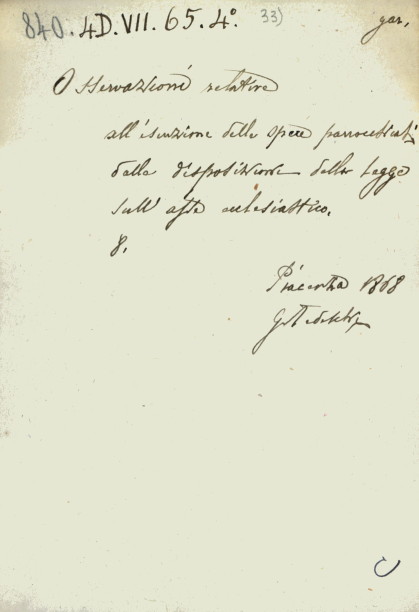 840. 4D. VII. 65. 4°. 33)
Osservazioni relative
all'esenzione delle opere parrocchiali
dalla disposizione della Legge
sull' asse eclesiastico.
8.
Piacenza 1868